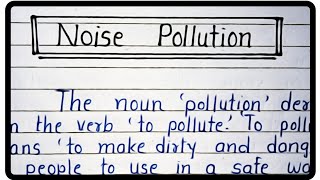 Noise Pollution
The noun 'pollution' der
n the verb 'to pollute.' To poll
ans 'to make dirty and dang
people to use in a safe wa